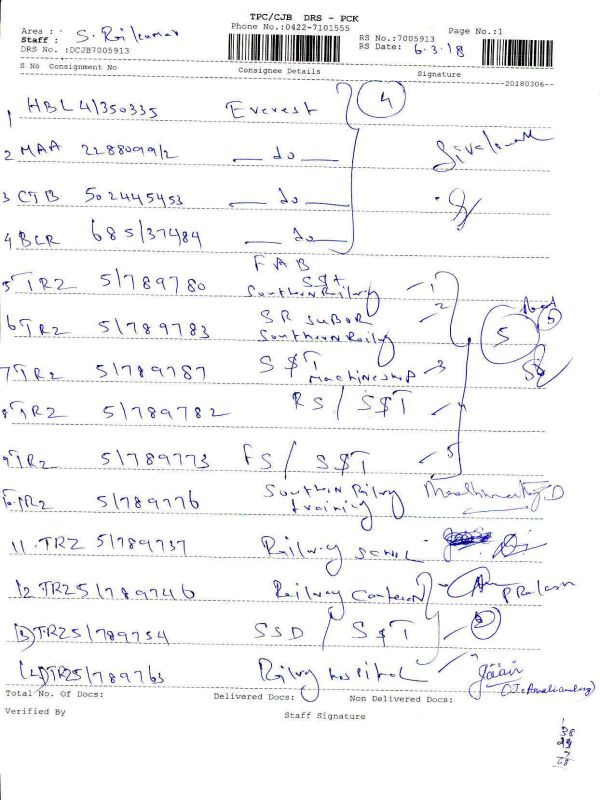 TPC/CJB DRS - PCK
Area :
Phone No.:0422-7101555
Page No.:1
Staff : S. Rajkumar
RS No.:7005913
DRS No. :DCJB7005913
RS Date: 6.3.18
S No Consignment No Consignee Details Signature
20180306
1 HBL 41350335 Everest 4
2 MAA 228809912 do
3 CTB 502445453 do
4 BCR 685137484 do
5 TR2 51789780 FAB S$T Southern Railway 1
6 TR2 51789783 SR SUBOR Southern Railway 2
5
7 TR2 51789787 S$T Machineshop 3
8 TR2 51789782 RS / S$T 4
9 TR2 51789773 FS / S$T 5
10 TR2 51789776 Southern Railway training
11. TR2 51789737 Railway School
12 TR2 51789746 Railway Canteen
13) TR2 51789754 SSD / S$T
14) TR2 51789763 Railway Hospital
Total No. Of Docs: Delivered Docs: Non Delivered Docs:
Verified By Staff Signature